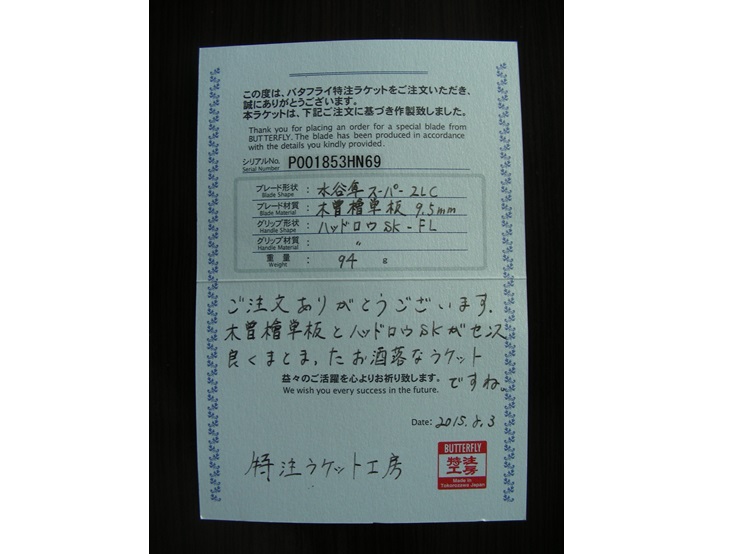 この度は、バタフライ特注ラケットをご注文いただき、
誠にありがとうございます。
本ラケットは、下記ご注文に基づき作製致しました。
Thank you for placing an order for a special blade from
BUTTERFLY. The blade has been produced in accordance
with the details you kindly provided.
シリアルNo. P001853HN69
Serial Number
ブレード形状 : 水谷隼スーパーZLC
Blade Shape
ブレード材質 : 木曽檜単板 9.5mm
Blade Material
グリップ形状 : ハッドロウSK-FL
Handle Shape
グリップ材質 : 〃
Handle Material
重量 : 94 g
Weight
ご注文ありがとうございます。
木曽檜単板とハッドロウSKがセンス
良くまとまったお洒落なラケット
ですね。
益々のご活躍を心よりお祈り致します。
We wish you every success in the future.
Date: 2015.8.3
特注ラケット工房
BUTTERFLY
特注
工房
Made in
Tokorozawa Japan